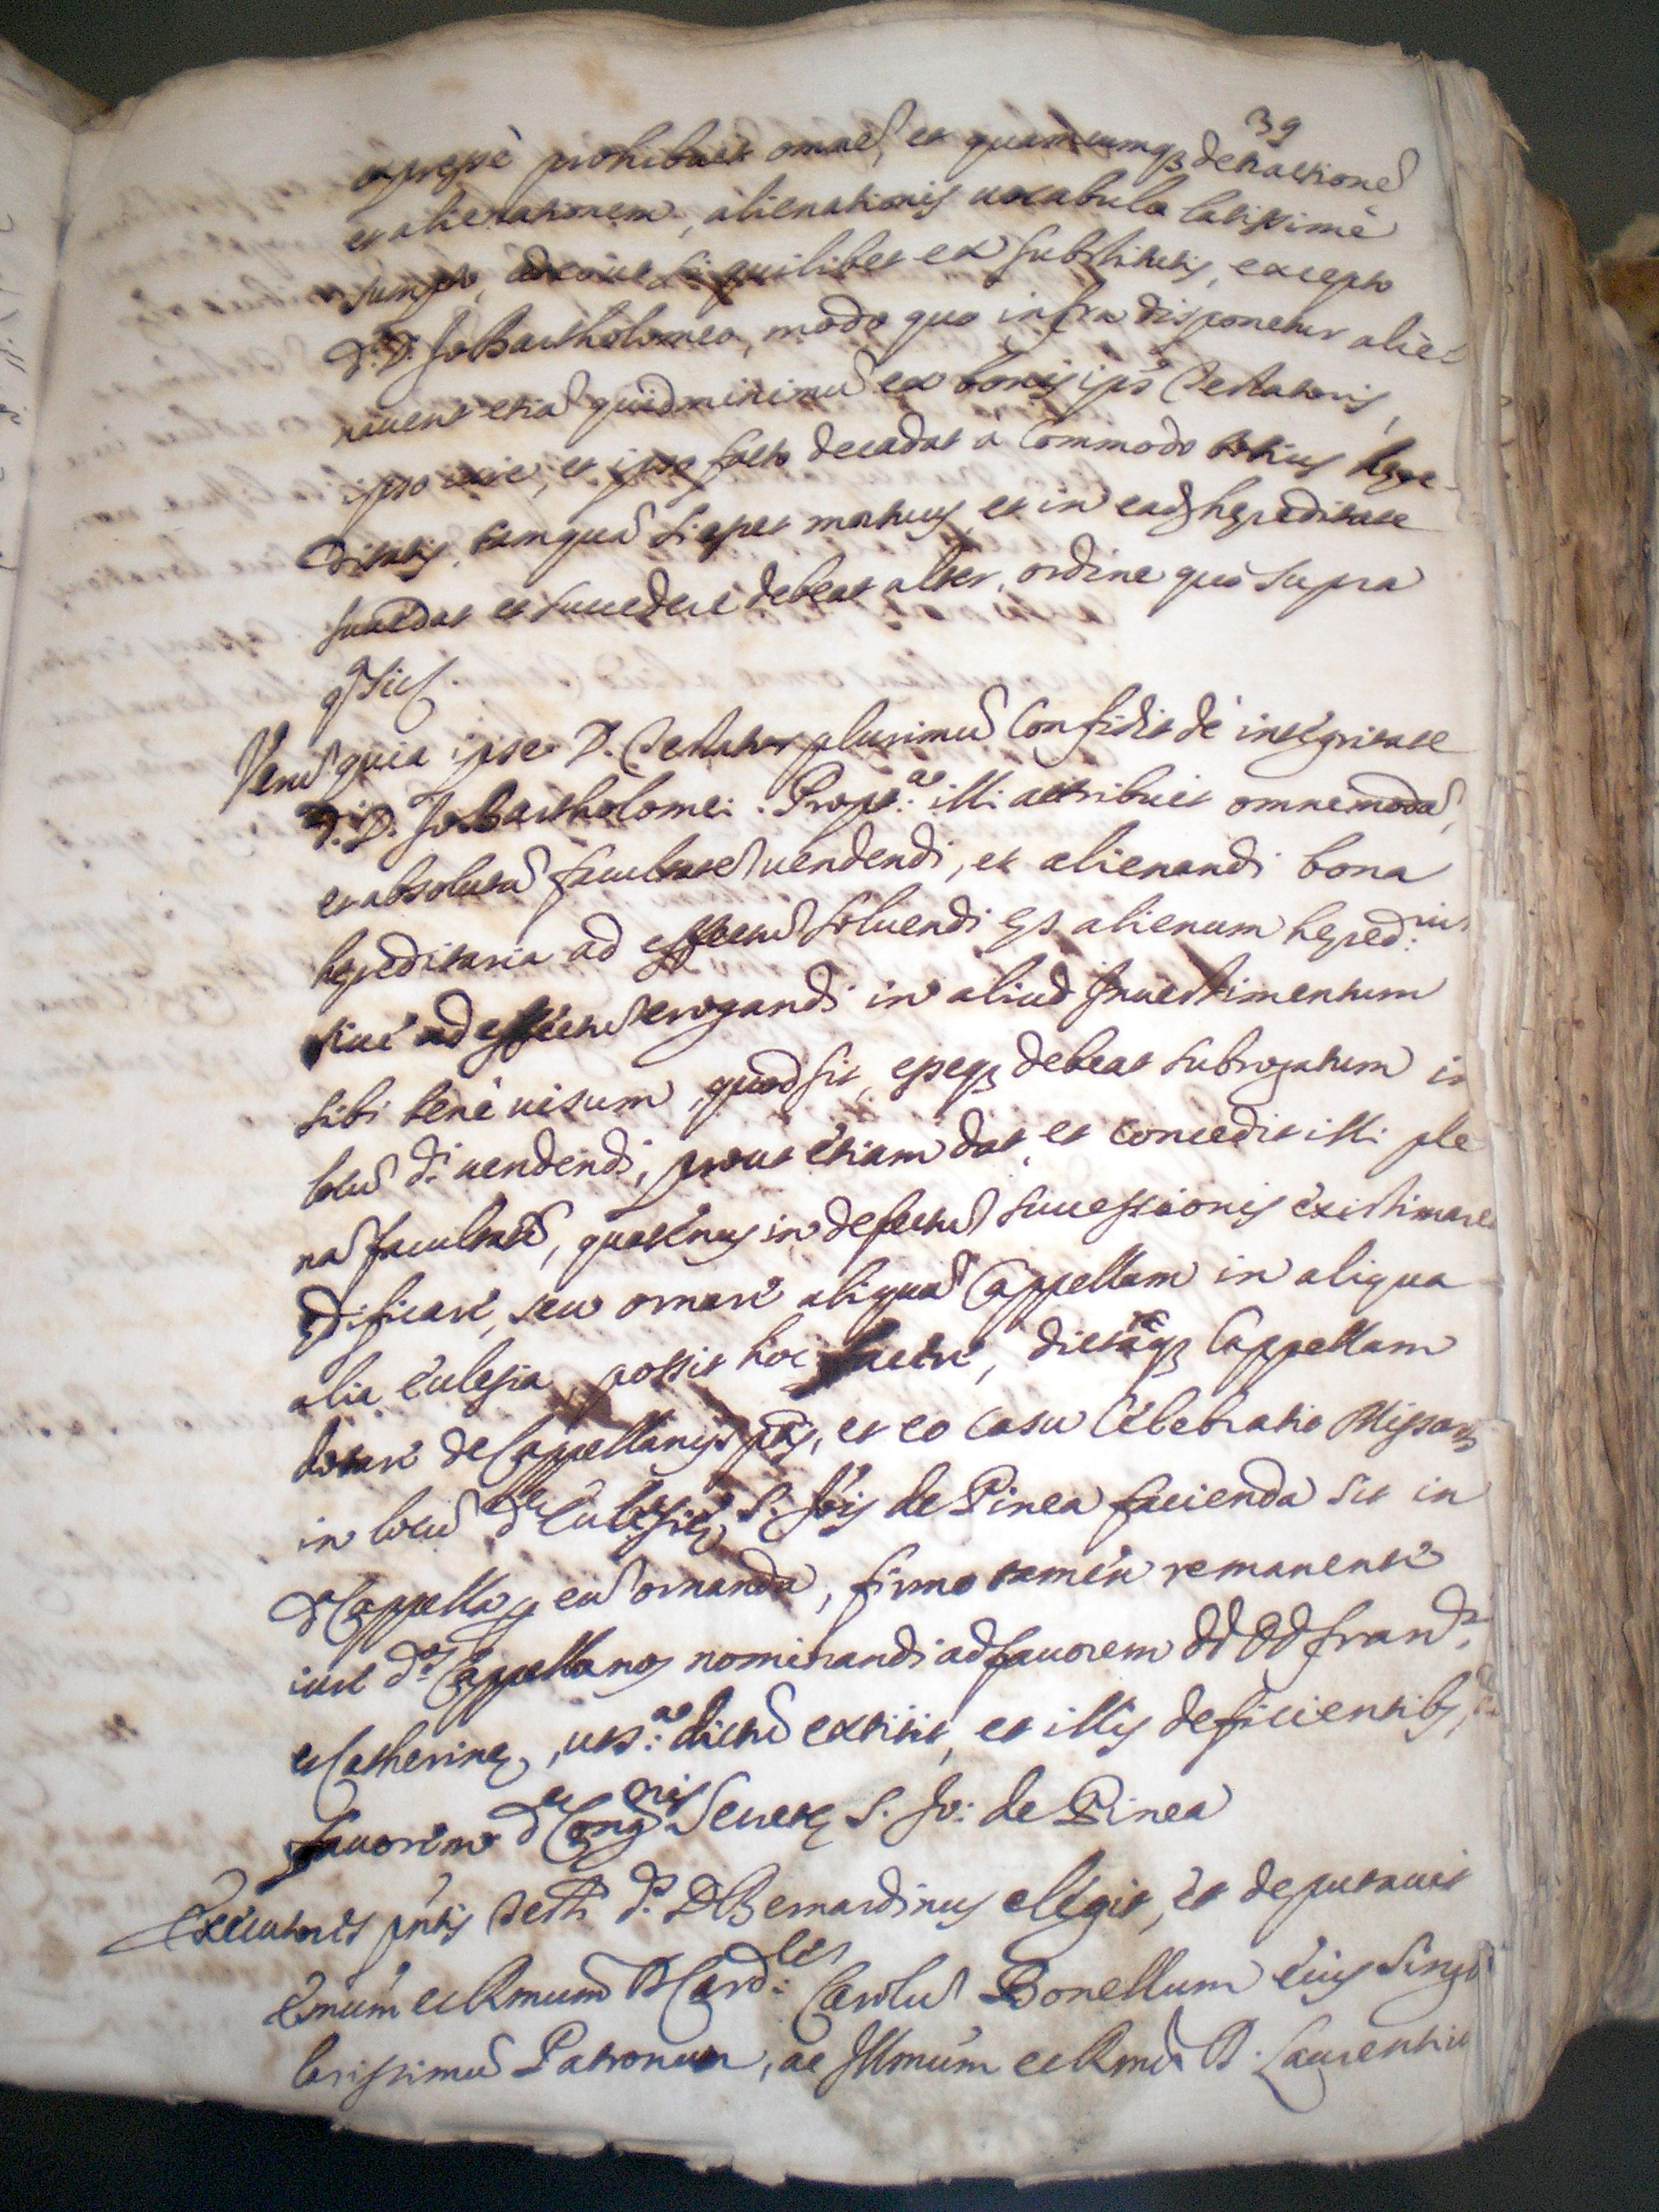 39
expressè prohibuit omnẽ, et quamcumq; detractionẽ
et alienationem, alienationis uocabulo latissimè
sumpto, adeout si quilibet ex substitutis, excepto
d. D. Jo Bartholomeo, modo quo infra disponetur aliè
nauerit etiã quid minimũ ex bonis ips̃ Testatoris,
ipso iure, et ipso facto decadat à commodo totius hęre-
ditatis, tamquã si esset mortuus, et in eadẽ hęreditate
succedat et succedere debeat alter, ordine quo supra
q̃ sic
Verũ quia ipse D. Testator plurimũ Confidit dè integritate
d. D. Jo Bartholomei. Propt.ea illi attribuit omnemodã,
et absolutã facultatẽ uendendi, et alienandi bona
hęreditaria ad effectũ soluendi ęs alienum hęred:rium
siue ad effectũ erogandi in aliud Inuestimentum
sibi benè uisum, quod sit, esseq; debeat subrogatum in
locũ di uendendi, prout etiam dat, et concedit illi ple
nã facultatẽ, quatenus in defectũ successionis existimaret
ędificare, seu ornare aliquã Cappellam in aliqua
alia Ecclesia, possit hoc facere, dictãq; Cappellam
dotare de Cappellanijs ptis, et eo casu Celebratio Missarũ
in locũ dę Ecclesię S. Jõis de Pinea facienda sit in
da Cappella p eũ ornanda, firmo tamen remanente
iure dos Cappellanos nominandi ad fauorem dd DD Fran.
et Catherinę, ut s.a dictũ extitit, et illis deficientib;,
fauorem dę Cong.nis Secretę S. Jo: de Pinea
Executores pñtis Testi d. D Bernardinus elegit, et deputauit
Emũm et Rmum D Card:lem Carolũ Bonellum eius singu
larissimũ Patronum, ac Illmũm et Rmũ D. Laurentiũ